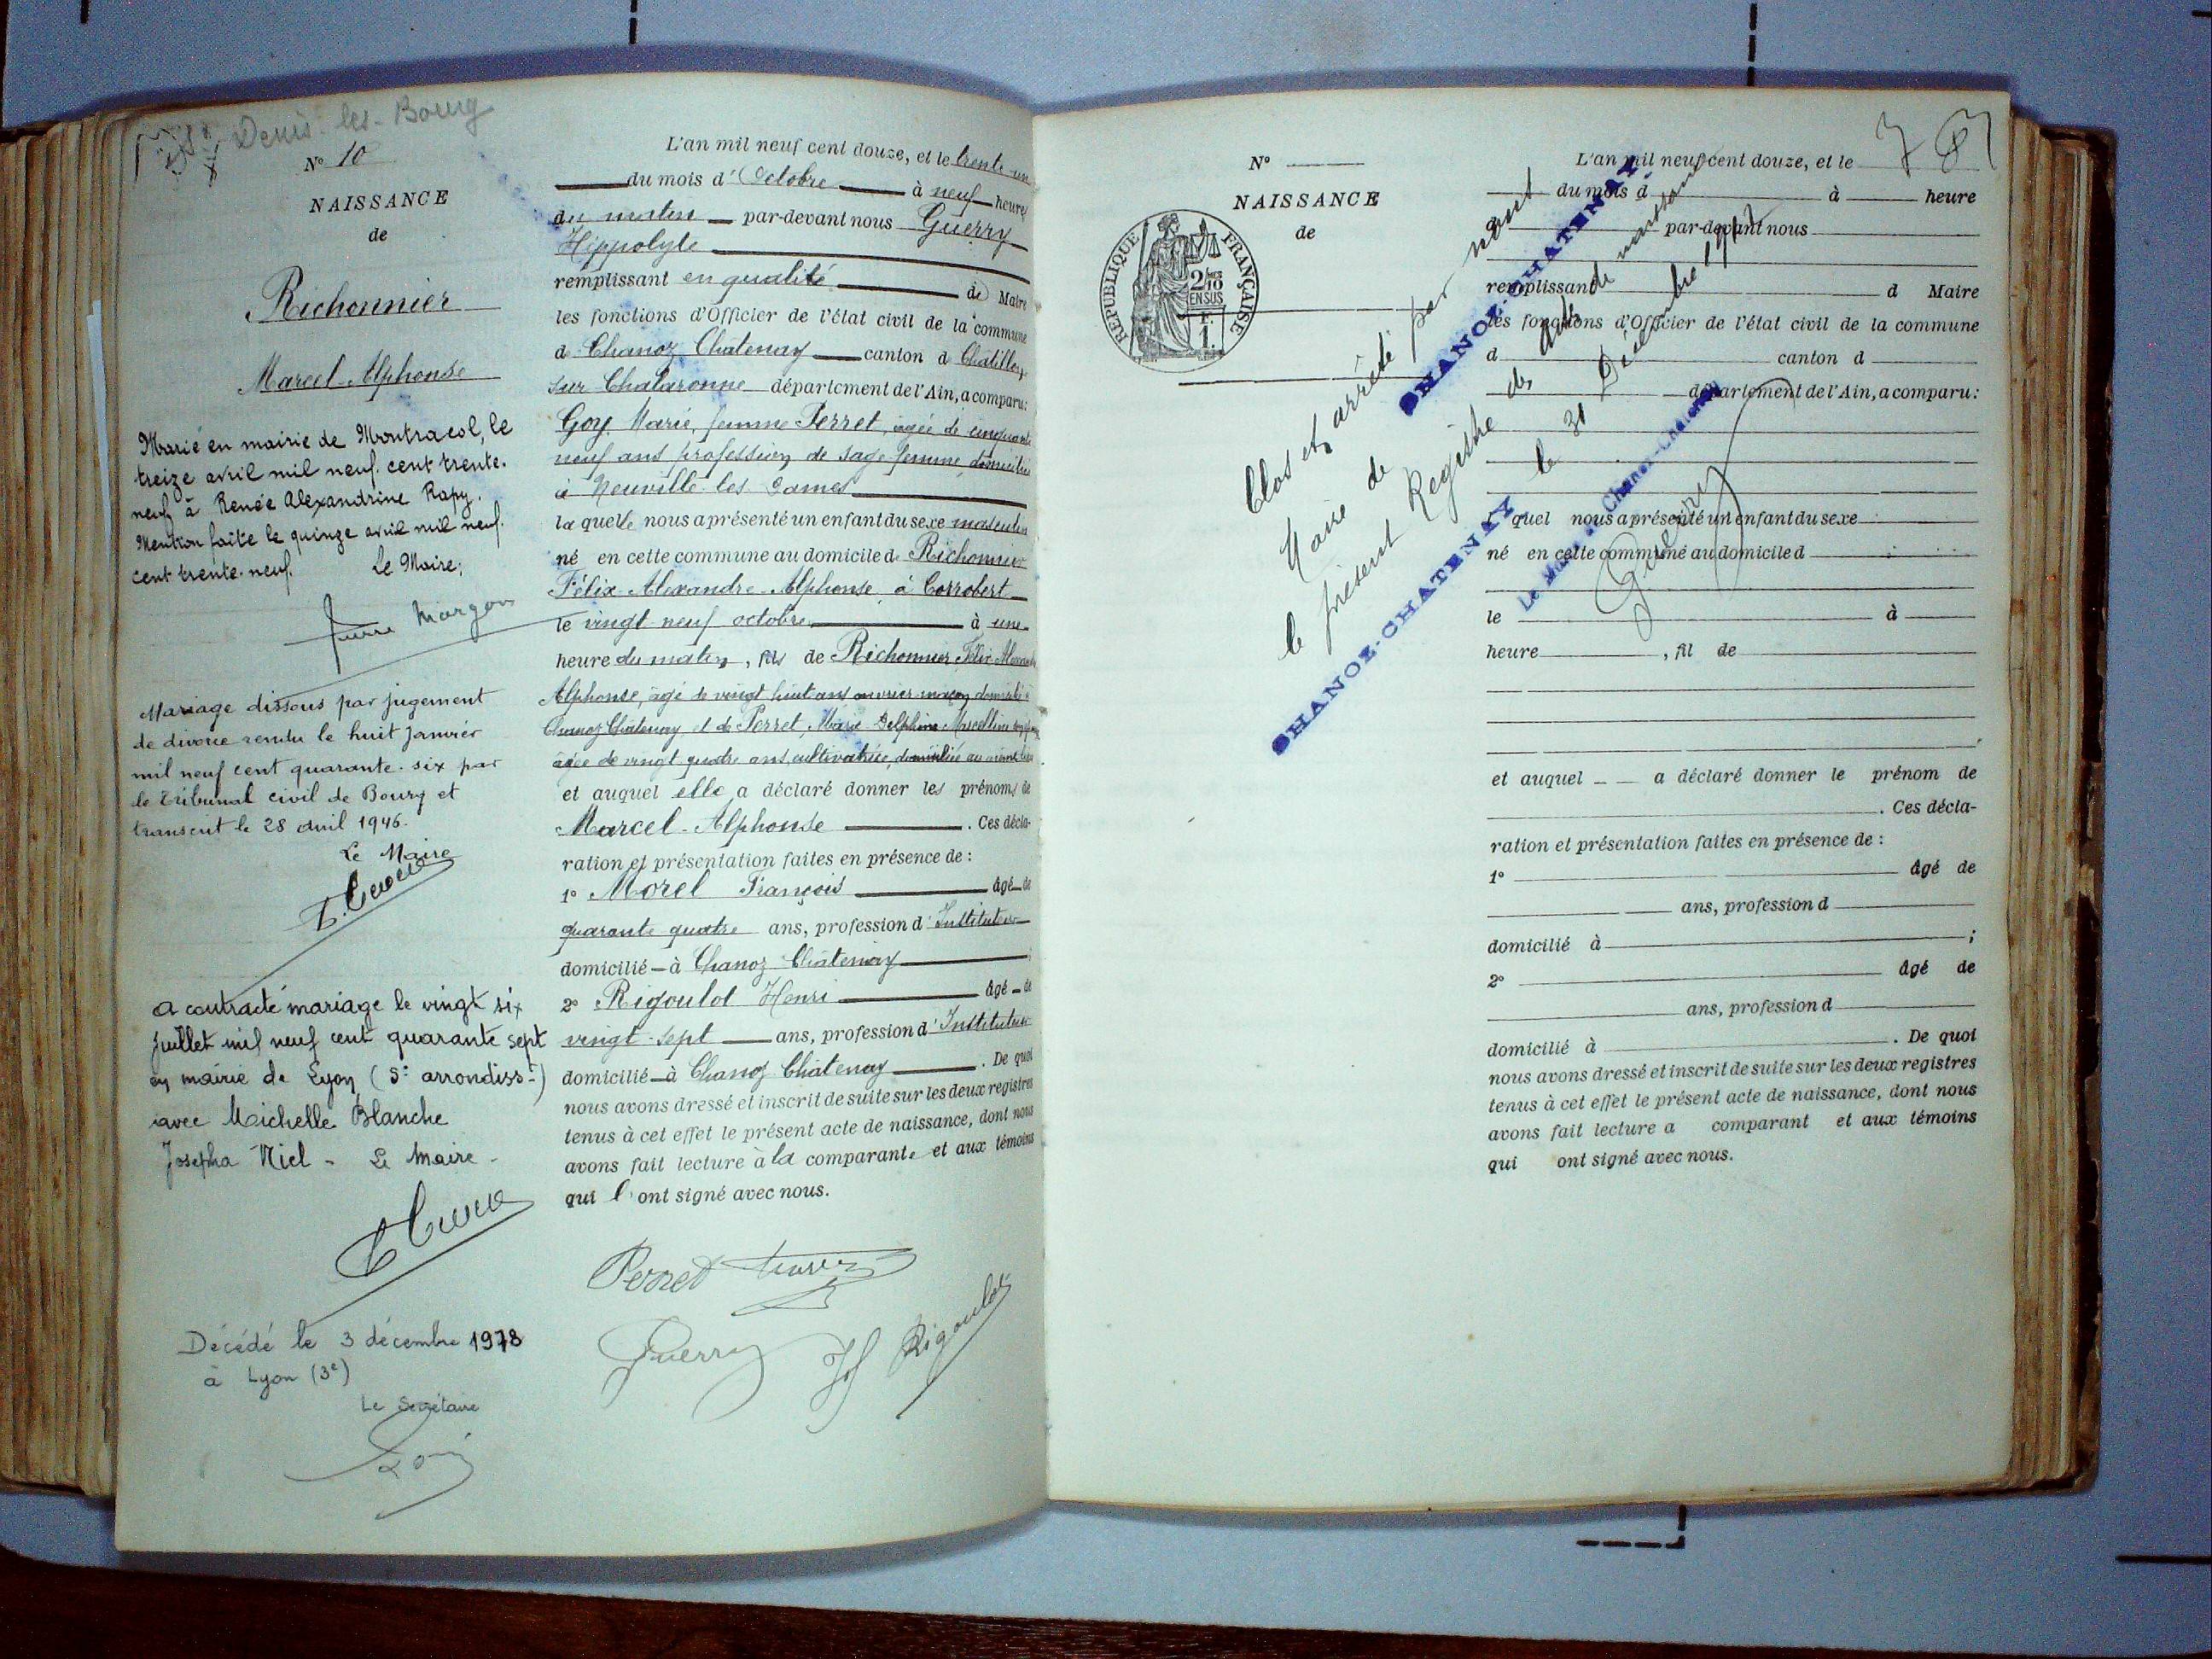 Denis-les-Bourg
N° 10
NAISSANCE
de
Richonnier
Marcel-Alphonse
Marié en mairie de Montracol, le
treize avril mil neuf cent trente-
neuf à Renée Alexandrine Rapy.
Mention faite le quinze avril mil neuf
cent trente-neuf. Le Maire,
Pierre Morgon
Mariage dissous par jugement
de divorce rendu le huit Janvier
mil neuf cent quarante-six par
le Tribunal civil de Bourg et
transcrit le 28 avril 1946.
Le Maire
A contracté mariage le vingt six
juillet mil neuf cent quarante sept
en mairie de Lyon (5e arrondiss-t)
avec Michelle Blanche
Josepha Niel - Le Maire -
Décédé le 3 décembre 1978
à Lyon (3e)
Le Secrétaire
L'an mil neuf cent douze, et le trente-un
du mois d'Octobre à neuf heures
du matin par-devant nous Guerry
Hippolyte
remplissant en qualité de Maire
les fonctions d'Officier de l'état civil de la commune
de Chanoz Chatenay canton de Chatillon
sur Chalaronne département de l'Ain, a comparu:
Goy Marie, femme Perret, âgée de cinquante
neuf ans profession de sage-femme domiciliée
à Neuville-les-Dames
laquelle nous a présenté un enfant du sexe masculin
né en cette commune au domicile de Richonnier
Félix Alexandre Alphonse, à Corrobert
le vingt neuf octobre à une
heure du matin, fils de Richonnier Félix Alexandre
Alphonse, âgé de vingt huit ans ouvrier maçon domicilié à
Chanoz Chatenay et de Perret, Marie Delphine Marcelline
âgée de vingt quatre ans, cultivatrice, domiciliée au même lieu
et auquel elle a déclaré donner les prénoms de
Marcel-Alphonse . Ces décla-
ration et présentation faites en présence de :
1° Morel François âgé de
quarante quatre ans, profession d'Instituteur
domicilié à Chanoz Châtenay ;
2° Rigoulot Henri âgé de
vingt-sept ans, profession d'Instituteur
domicilié à Chanoz Châtenay . De quoi
nous avons dressé et inscrit de suite sur les deux registres
tenus à cet effet le présent acte de naissance, dont nous
avons fait lecture à la comparante et aux témoins
qui l'ont signé avec nous.
Perret
Guerry
Rigoulot
N°
NAISSANCE
de
RÉPUBLIQUE FRANÇAISE
2/10
EN SUS
1.
Clos et arrêté par nous
Maire de CHANOZ-CHATENAY
le présent Registre des actes de naissance
CHANOZ-CHATENAY le 31 Décembre 1912
Le Maire de Chanoz-Chatenay
Guerry
L'an mil neuf cent douze, et le
du mois d à heure
par-devant nous
remplissant d Maire
les fonctions d'Officier de l'état civil de la commune
d canton d
département de l'Ain, a comparu:
quel nous a présenté un enfant du sexe
né en cette commune au domicile d
le à
heure , fil de
et auquel a déclaré donner le prénom de
. Ces décla-
ration et présentation faites en présence de :
1° âgé de
ans, profession d
domicilié à ;
2° âgé de
ans, profession d
domicilié à . De quoi
nous avons dressé et inscrit de suite sur les deux registres
tenus à cet effet le présent acte de naissance, dont nous
avons fait lecture a comparant et aux témoins
qui ont signé avec nous.